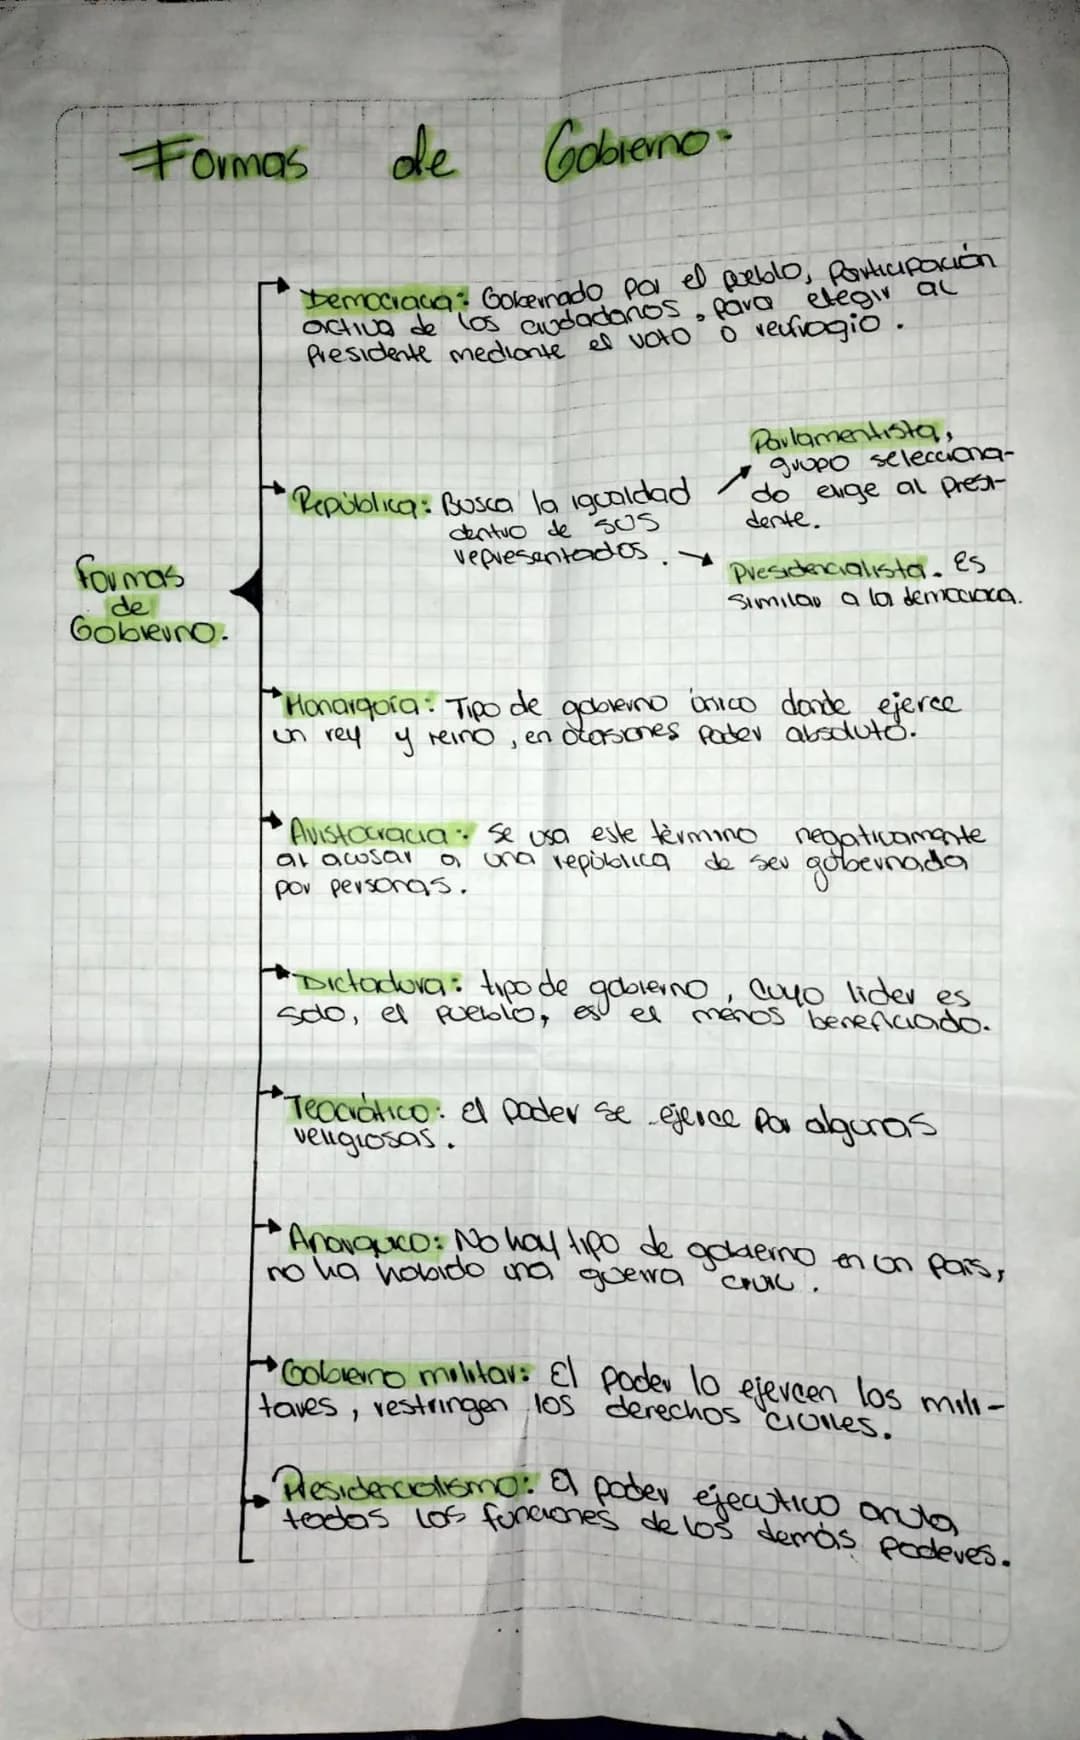 Formas de Gobierno.
Democracia: Gobernado por el pueblo, Participación
activa de los ciudadanos, para elegir al
Presidente mediante el voto o reufragio.
Parlamentista,
grupo selecciona-
do elige al presi-
dente.
República: Busca la igualdad
dentro de sus
representados.
Presidencialista. Es
similar a la democracia.
Formas
de
Gobierno.
Monarquía: Tipo de gobierno único donde ejerce
un rey y reino, en ocasiones poder absoluto.
Aristocracia: Se usa este término negativamente
al acusar a una república de ser gobernada
por personas.
Dictadura: tipo de gobierno, cuyo lider es
solo, el pueblo, es el menos beneficiado.
Teocrático: El poder se ejerce por algunas
religiosas.
Anarquico: No hay tipo de gobierno en un país,
no ha habido una guerra civil.
Gobierno militar: El poder lo ejercen los mili-
tares, restringen los derechos civiles.
Presidencialismo: El poder ejecutico anula
todas las funciones de los demás poderes.